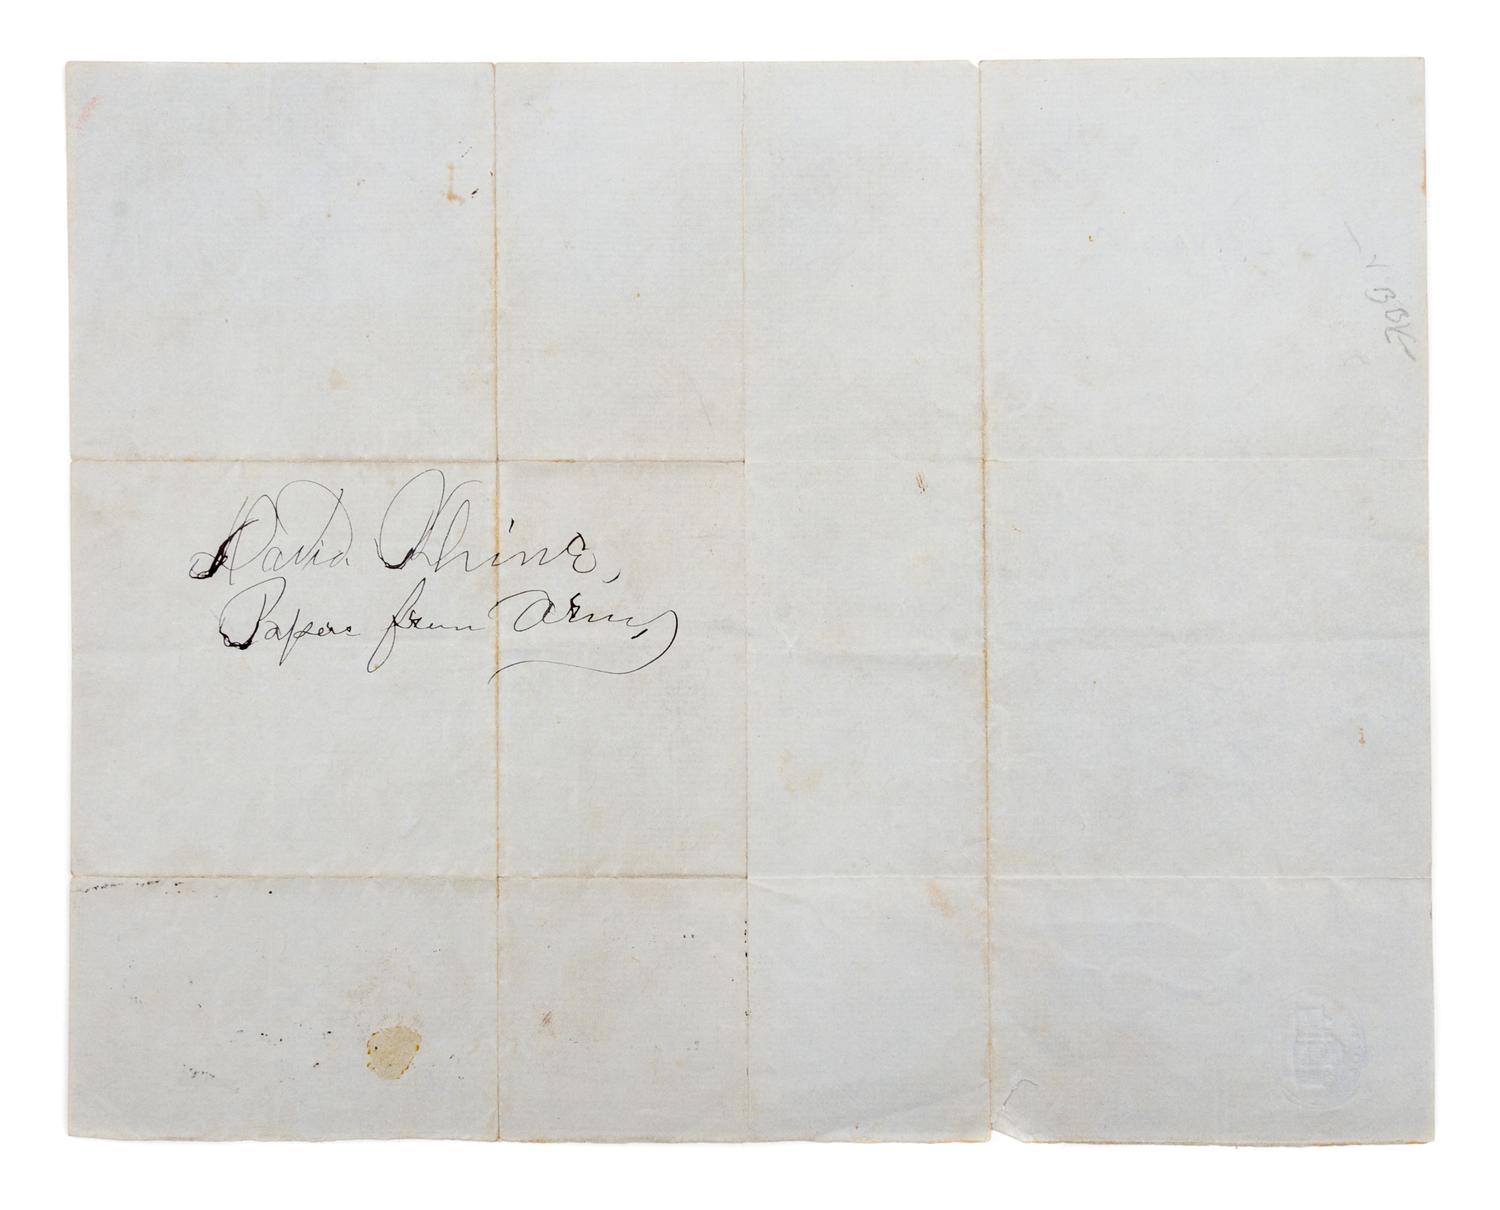 David Rhine,
Papers from Army